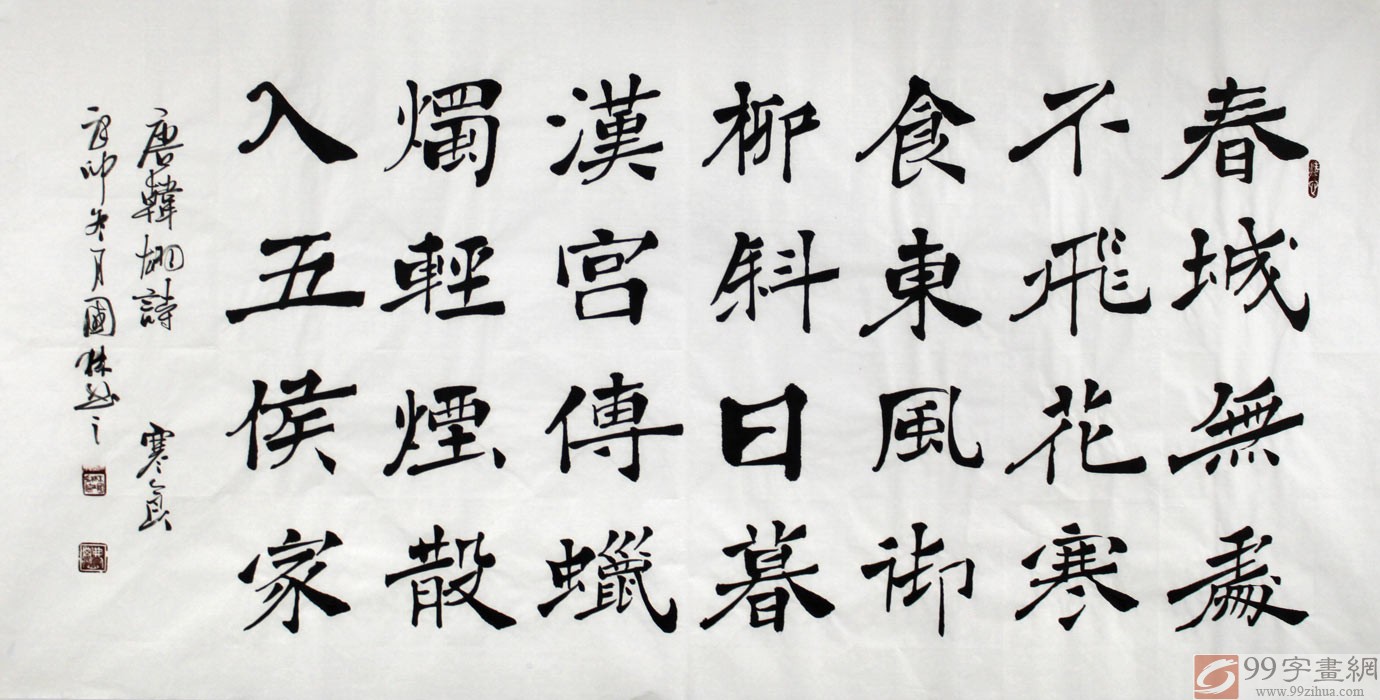 春城無處
不飛花寒
食東風御
柳斜日暮
漢宮傳蠟
燭輕煙散
入五侯家
唐韓翃詩 寒食
冬月國林
99字畫網
www.99zihua.com